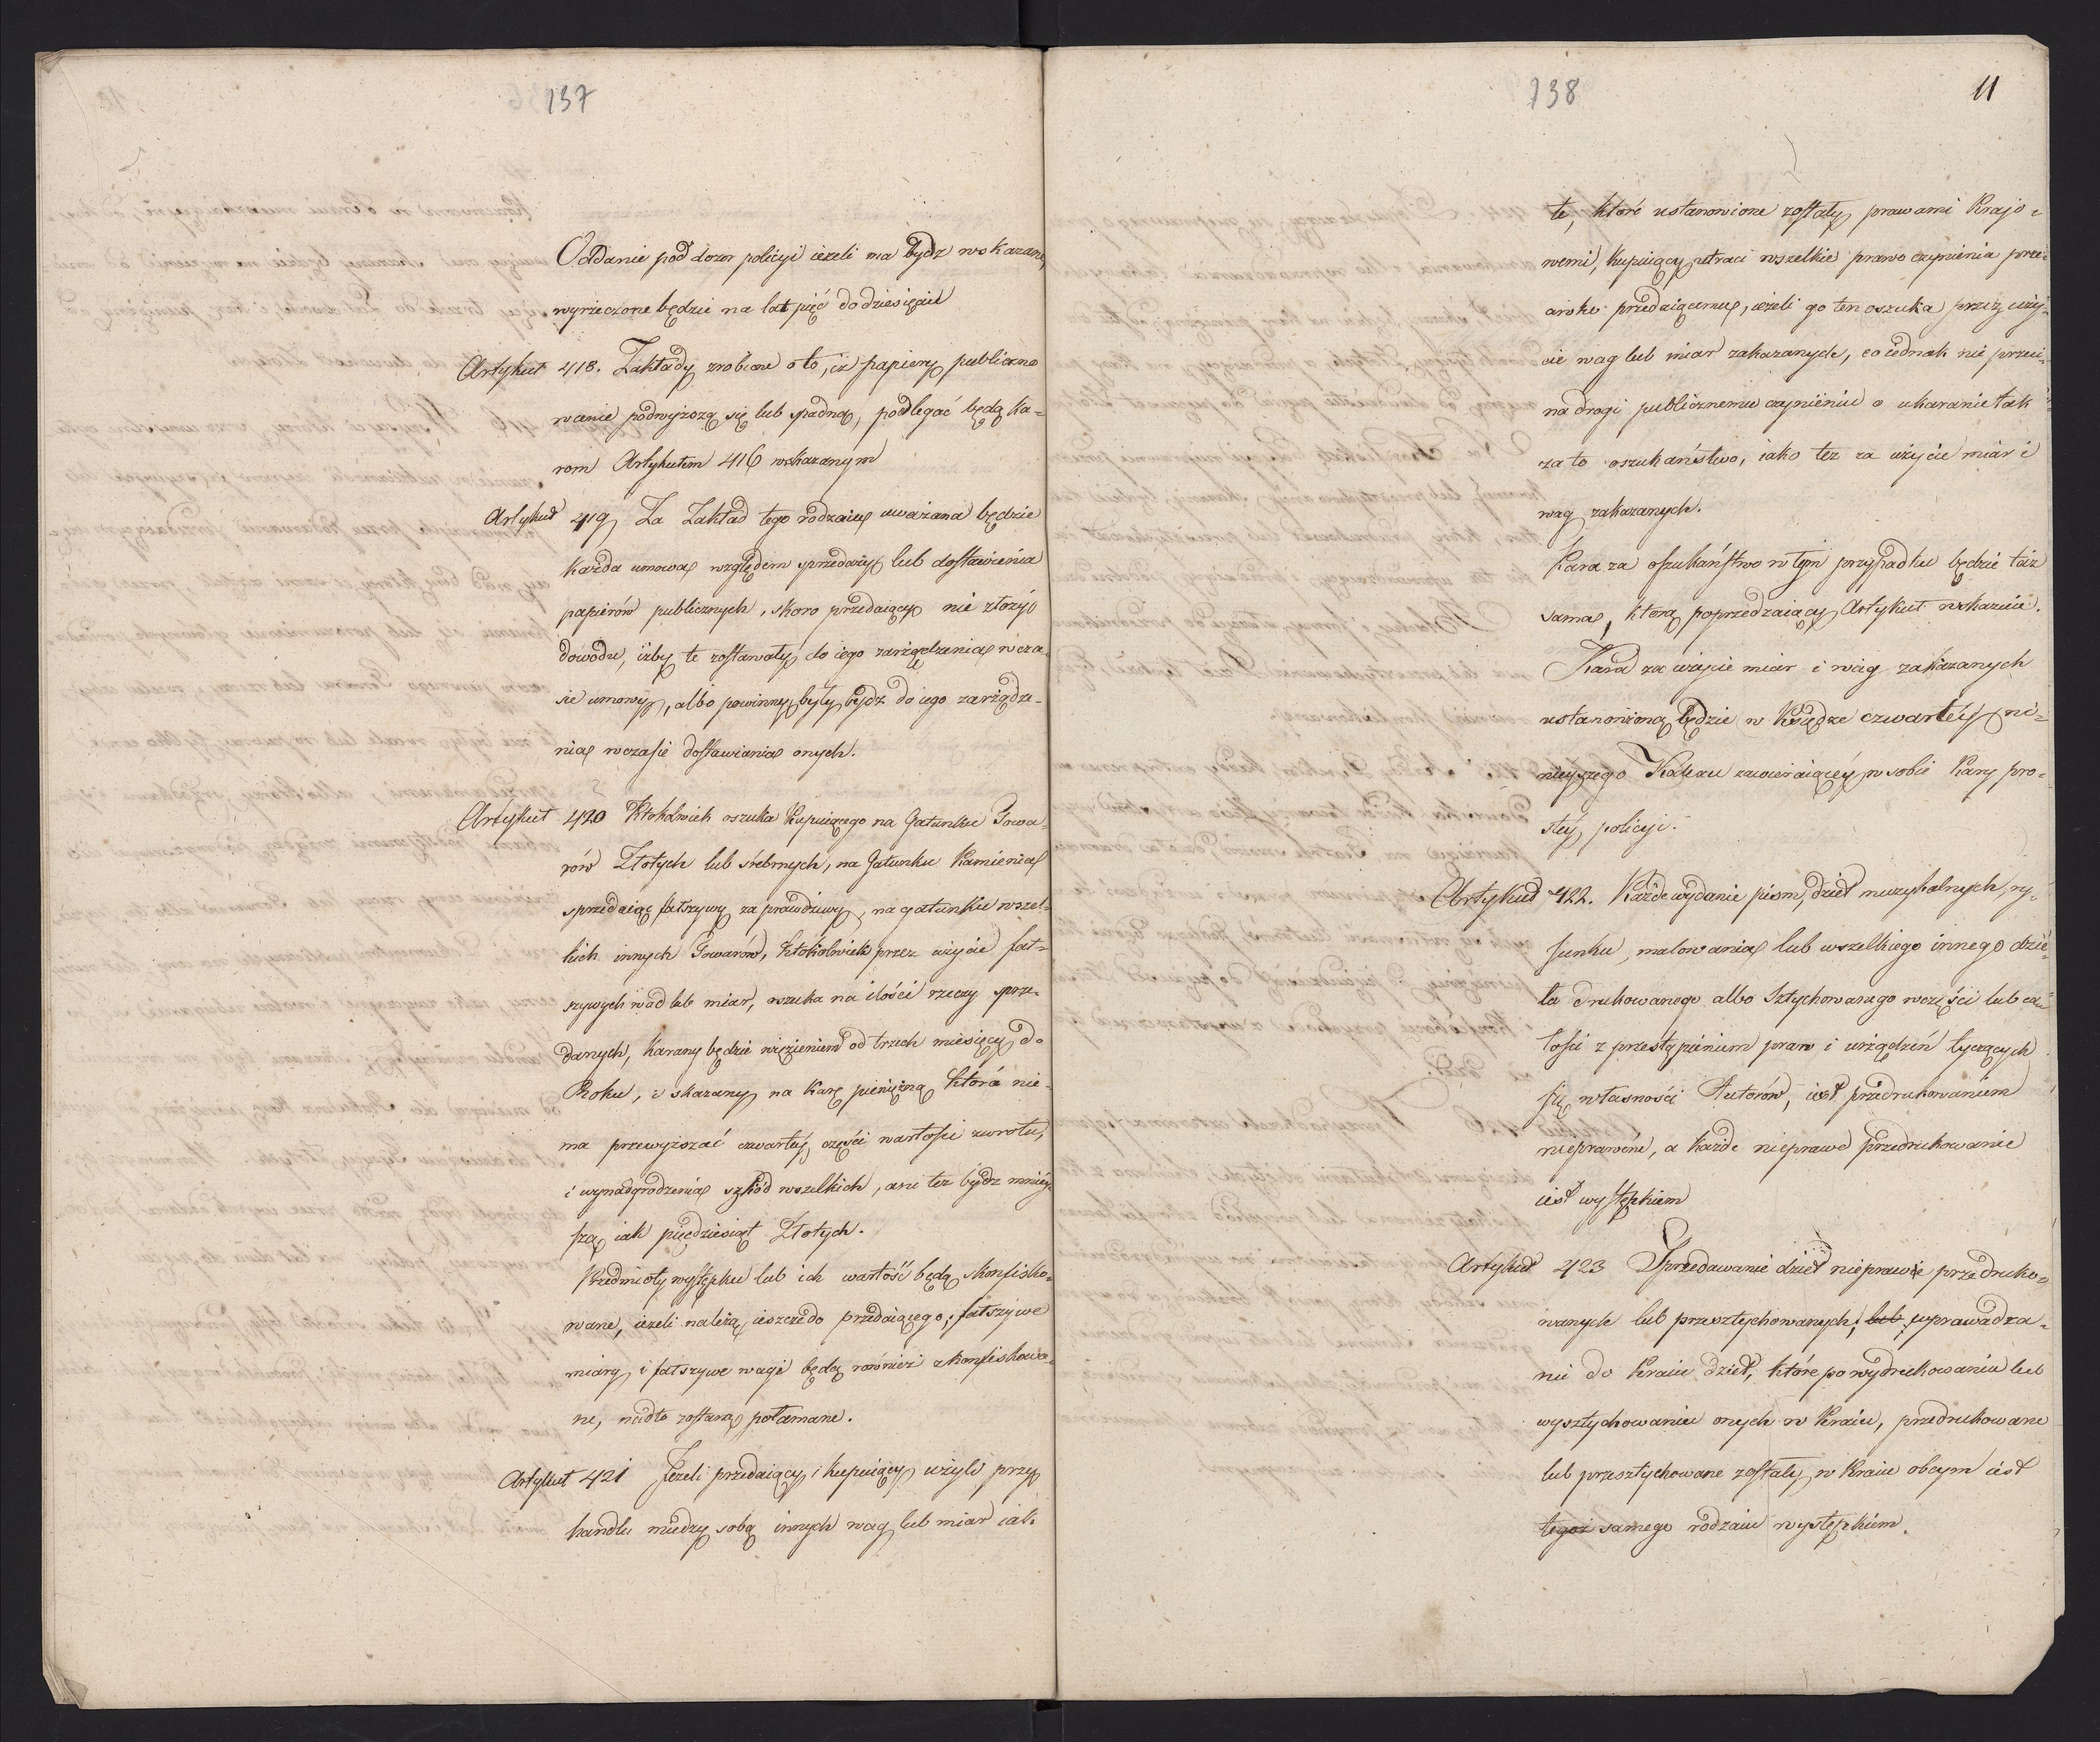 137
Oddanie pod dozor policyi ieżeli ma bydz wskazane,
wyrzeczone będzie na lat pięć do dziesięciu
Artykuł 418. Zakłady zrobione o to, iż papiery publiczne
w cenie podwyższą się lub spadną, podlegać będą ka=
rom Artykułem 416 wskazanym
Artykuł 419 Za Zakład tego rodzaiu uważana będzie
każda umowa względem sprzedaży lub dostawienia
papierów publicznych, skoro przedaiący nie złoży
dowodu, iżby te zostawały do iego zarządzenia w cza=
sie umowy, albo powinny były bydz do iego zarządze=
nia w czasie dostawiania onych.
Artykuł 420 Ktokolwiek oszuka Kupuiącego na Gatunku Towa=
rów Złotych lub śrebrnych, na Gatunku Kamienia
sprzedaiąc fałszywy za prawdziwy, na gatunku wszel=
kich innych Towarów, Ktokolwiek przez użycie fał=
szywych wag lub miar, oszuka na ilości rzeczy sprze=
danych, karany będzie więzieniem od trzech miesięcy do
Roku, i skazany na karę pieniężną która nie
ma przewyższać czwartéy części wartości zwrotu,
i wynadgrodzenia szkód wszelkich, ani też bydz mniéy=
szą iak pięćdziesiąt Złotych.
Przedmioty występku lub ich wartość będą skonfisko=
wane, ieżeli należą ieszcze do przedaiącego; fałszywe
miary i fałszywe wagi będą również zkonfiskowa=
ne, nadto zostaną połamane.
Artykuł 421 Jeżeli przedaiący i kupuiący użyli przy
handlu między sobą innych wag lub miar iak
138
11
te, które ustanowione zostały prawami Krajo=
wemi, kupuiący utraci wszelkie prawo czynienia prze=
ciwko przedaiącemu, ieżeli go ten oszuka przez uży=
cie wag lub miar zakazanych, co iednak nie przeci=
na drogi publicznemu czynieniu o ukaranie tak
za to oszukaństwo, iako też za użycie miar i
wag zakazanych.
Kara za oszukaństwo w tym przypadku będzie taż
sama, którą poprzedzaiący Artykuł wskazuie.
Kara za użycie miar i wag zakazanych
ustanowioną będzie w Księdze czwartéy ni=
nieyszego Kodexu zawieraiącéy w sobie kary pro=
stéy policyi.
Artykuł 422. Każde wydanie pism, dzieł muzykalnych, ry=
sunku, malowania lub wszelkiego innego dzie=
ła drukowanego albo Sztychowanego w części lub ca=
łości z przestąpieniem praw i urządzeń tyczących
się własności Autorów, iest przedrukowaniem
nieprawém, a każde nieprawe przedrukowanie
iest występkiem
Artykuł 423 Sprzedawanie dzieł nieprawie przedruko=
wanych lub przesztychowanych; lub wprawadza=
nie do Kraiu dzieł, które po wydrukowaniu lub
wysztychowaniu onych w Kraiu, przedrukowane
lub przesztychowane zostały w Kraiu obcym iest
tegoż samego rodzaiu występkiem.